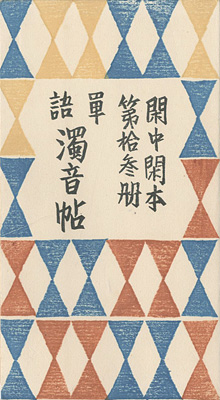 閑中閑本
第拾叄册
單語
濁音帖